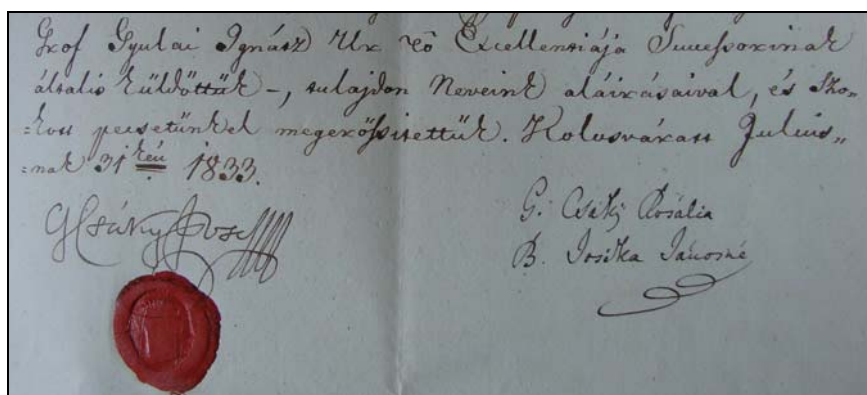 Gróf Gyulai Ignátz Ur eő Excellentiája Successorinak
általis küldöttük -, tulajdon Neveink aláirásaival, és szo-
=kott petsetünkel megerőssitettük. Kolosvàratt Julius„
=nak 31kén 1833.
G Csáky Josef
G. Csákÿ Rosália
B. Josika Jánosné